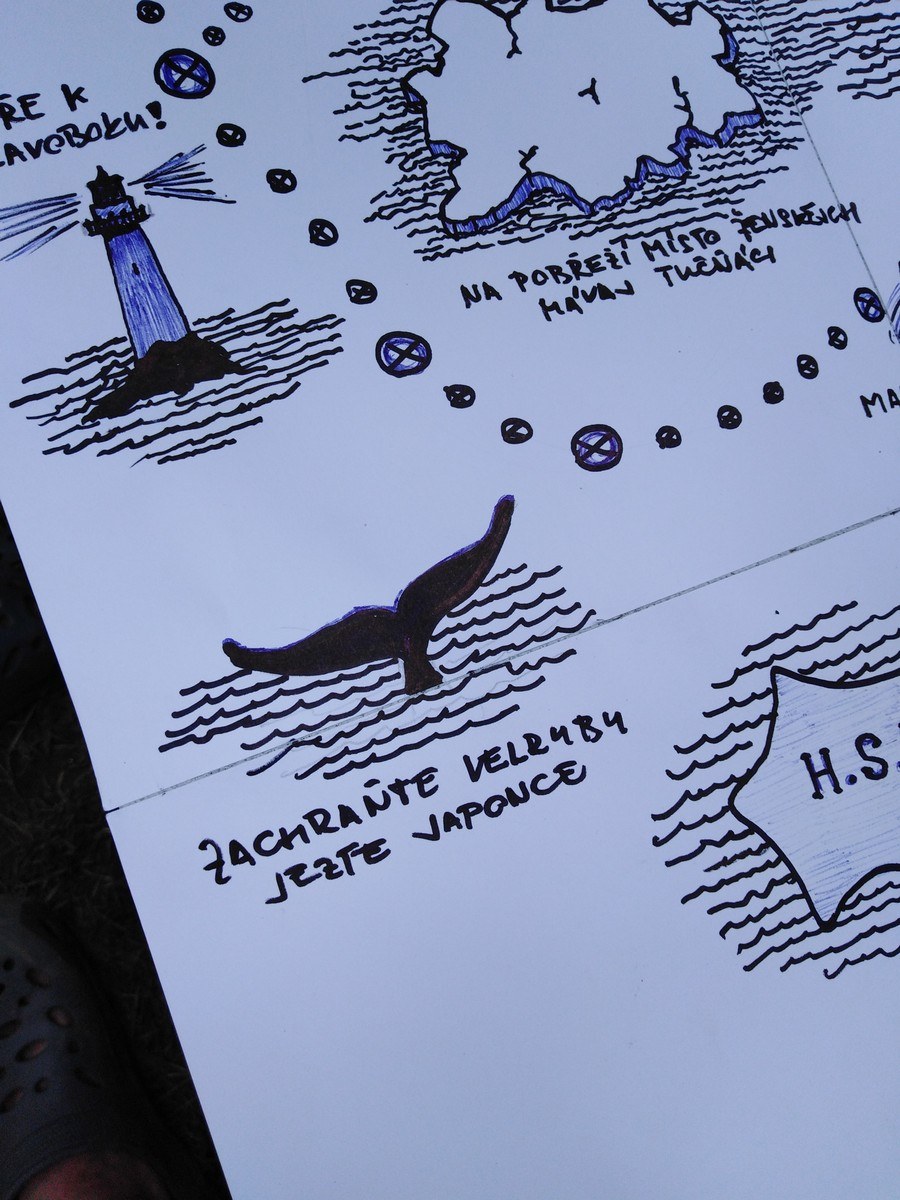 ŘE K
AVOBOKU!
NA POBŘEŽÍ MÍSTO ŽENSKEJCH
MÁVAJ TUČŇÁCI
MA
ZACHRAŇTE VELRYBY
JEZTE JAPONCE
H.S.